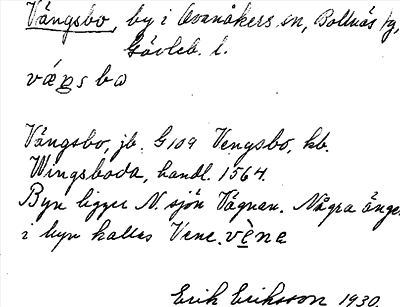 Vängsbo, by i Ovanåkers sn, Bollnäs tg,
Gävleb. l.
Vängsbo, jb. G109 Vengsbo, kb.
Wingsboda, handl. 1564.
Byn ligger N. sjön Vägnan. Några ängar
i byn kallas Vene. vène
Erik Eriksson 1930.